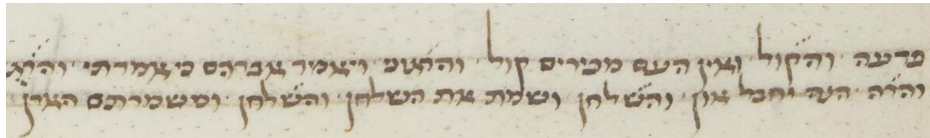 פרעה והקול ואין העם מכירים קול ויאמר אברהם כי אמרתי
והרה הנה יחבל און והשלחן ושמת את השלחן והשלחן ומשמרתם הארן